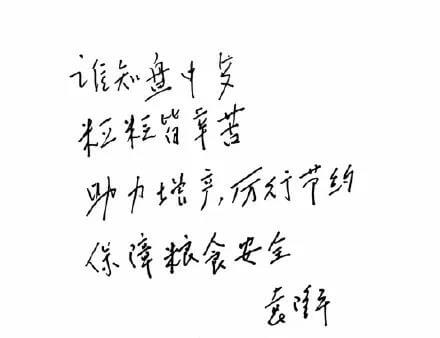 谁知盘中多
粒粒皆辛苦
助力增产，厉行节约
保障粮食安全
袁隆平